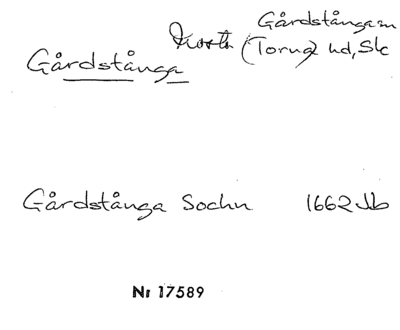 Gårdstånga sn
Gårdstånga
(Torna) hd, Sk
Gårdstånga Sochn 1662 Jb
Nr 17589